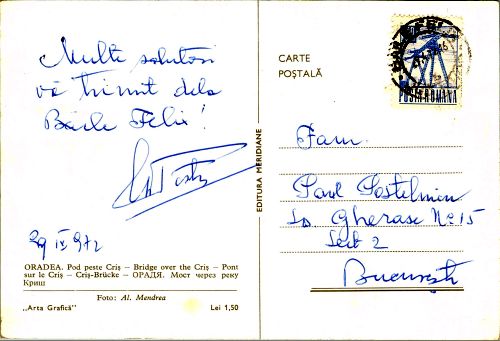 Multe salutări
vă trimit dela
Băile Felix!
29 IV 972
ORADEA. Pod peste Criș — Bridge over the Criș — Pont
sur le Criș — Criș-Brücke — ОРАДЯ. Мост через реку
Криш
Foto: Al. Mendrea
„Arta Grafică" Lei 1,50
EDITURA MERIDIANE
CARTE
POȘTALĂ
POSTA ROMANA
Fam.
Paul Postelnicu
Gherase No 15
Sect 2
București